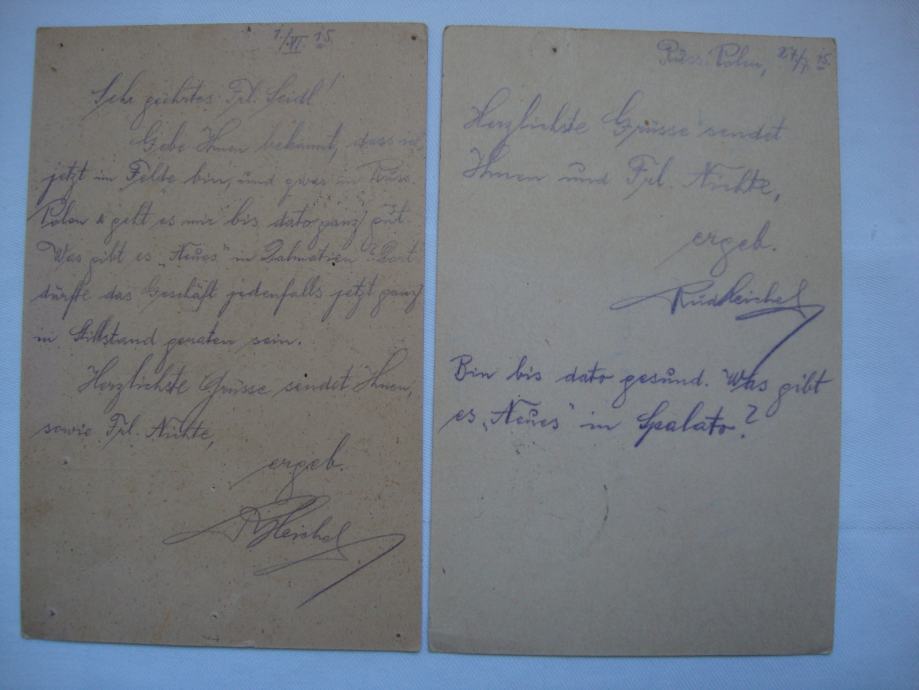 1./VI. 15.
Sehr geehrtes Frl. Seidl!
Gebe Ihnen bekannt, dass ich
jetzt im Felde bin, und zwar in Russ.
Polen & geht es mir bis dato ganz gut.
Was gibt es „Neues" in Dalmatien? Dort
dürfte das Geschäft jedenfalls jetzt ganz
in Stillstand geraten sein.
Herzlichste Grüsse sendet Ihnen,
sowie Frl. Nichte,
ergeb.
R. Reichel
Russ. Polen, 27/7. 15.
Herzlichste Grüsse sendet
Ihnen und Frl. Nichte,
ergeb.
Rud Reichel
Bin bis dato gesund. Was gibt
es „Neues" in Spalato?